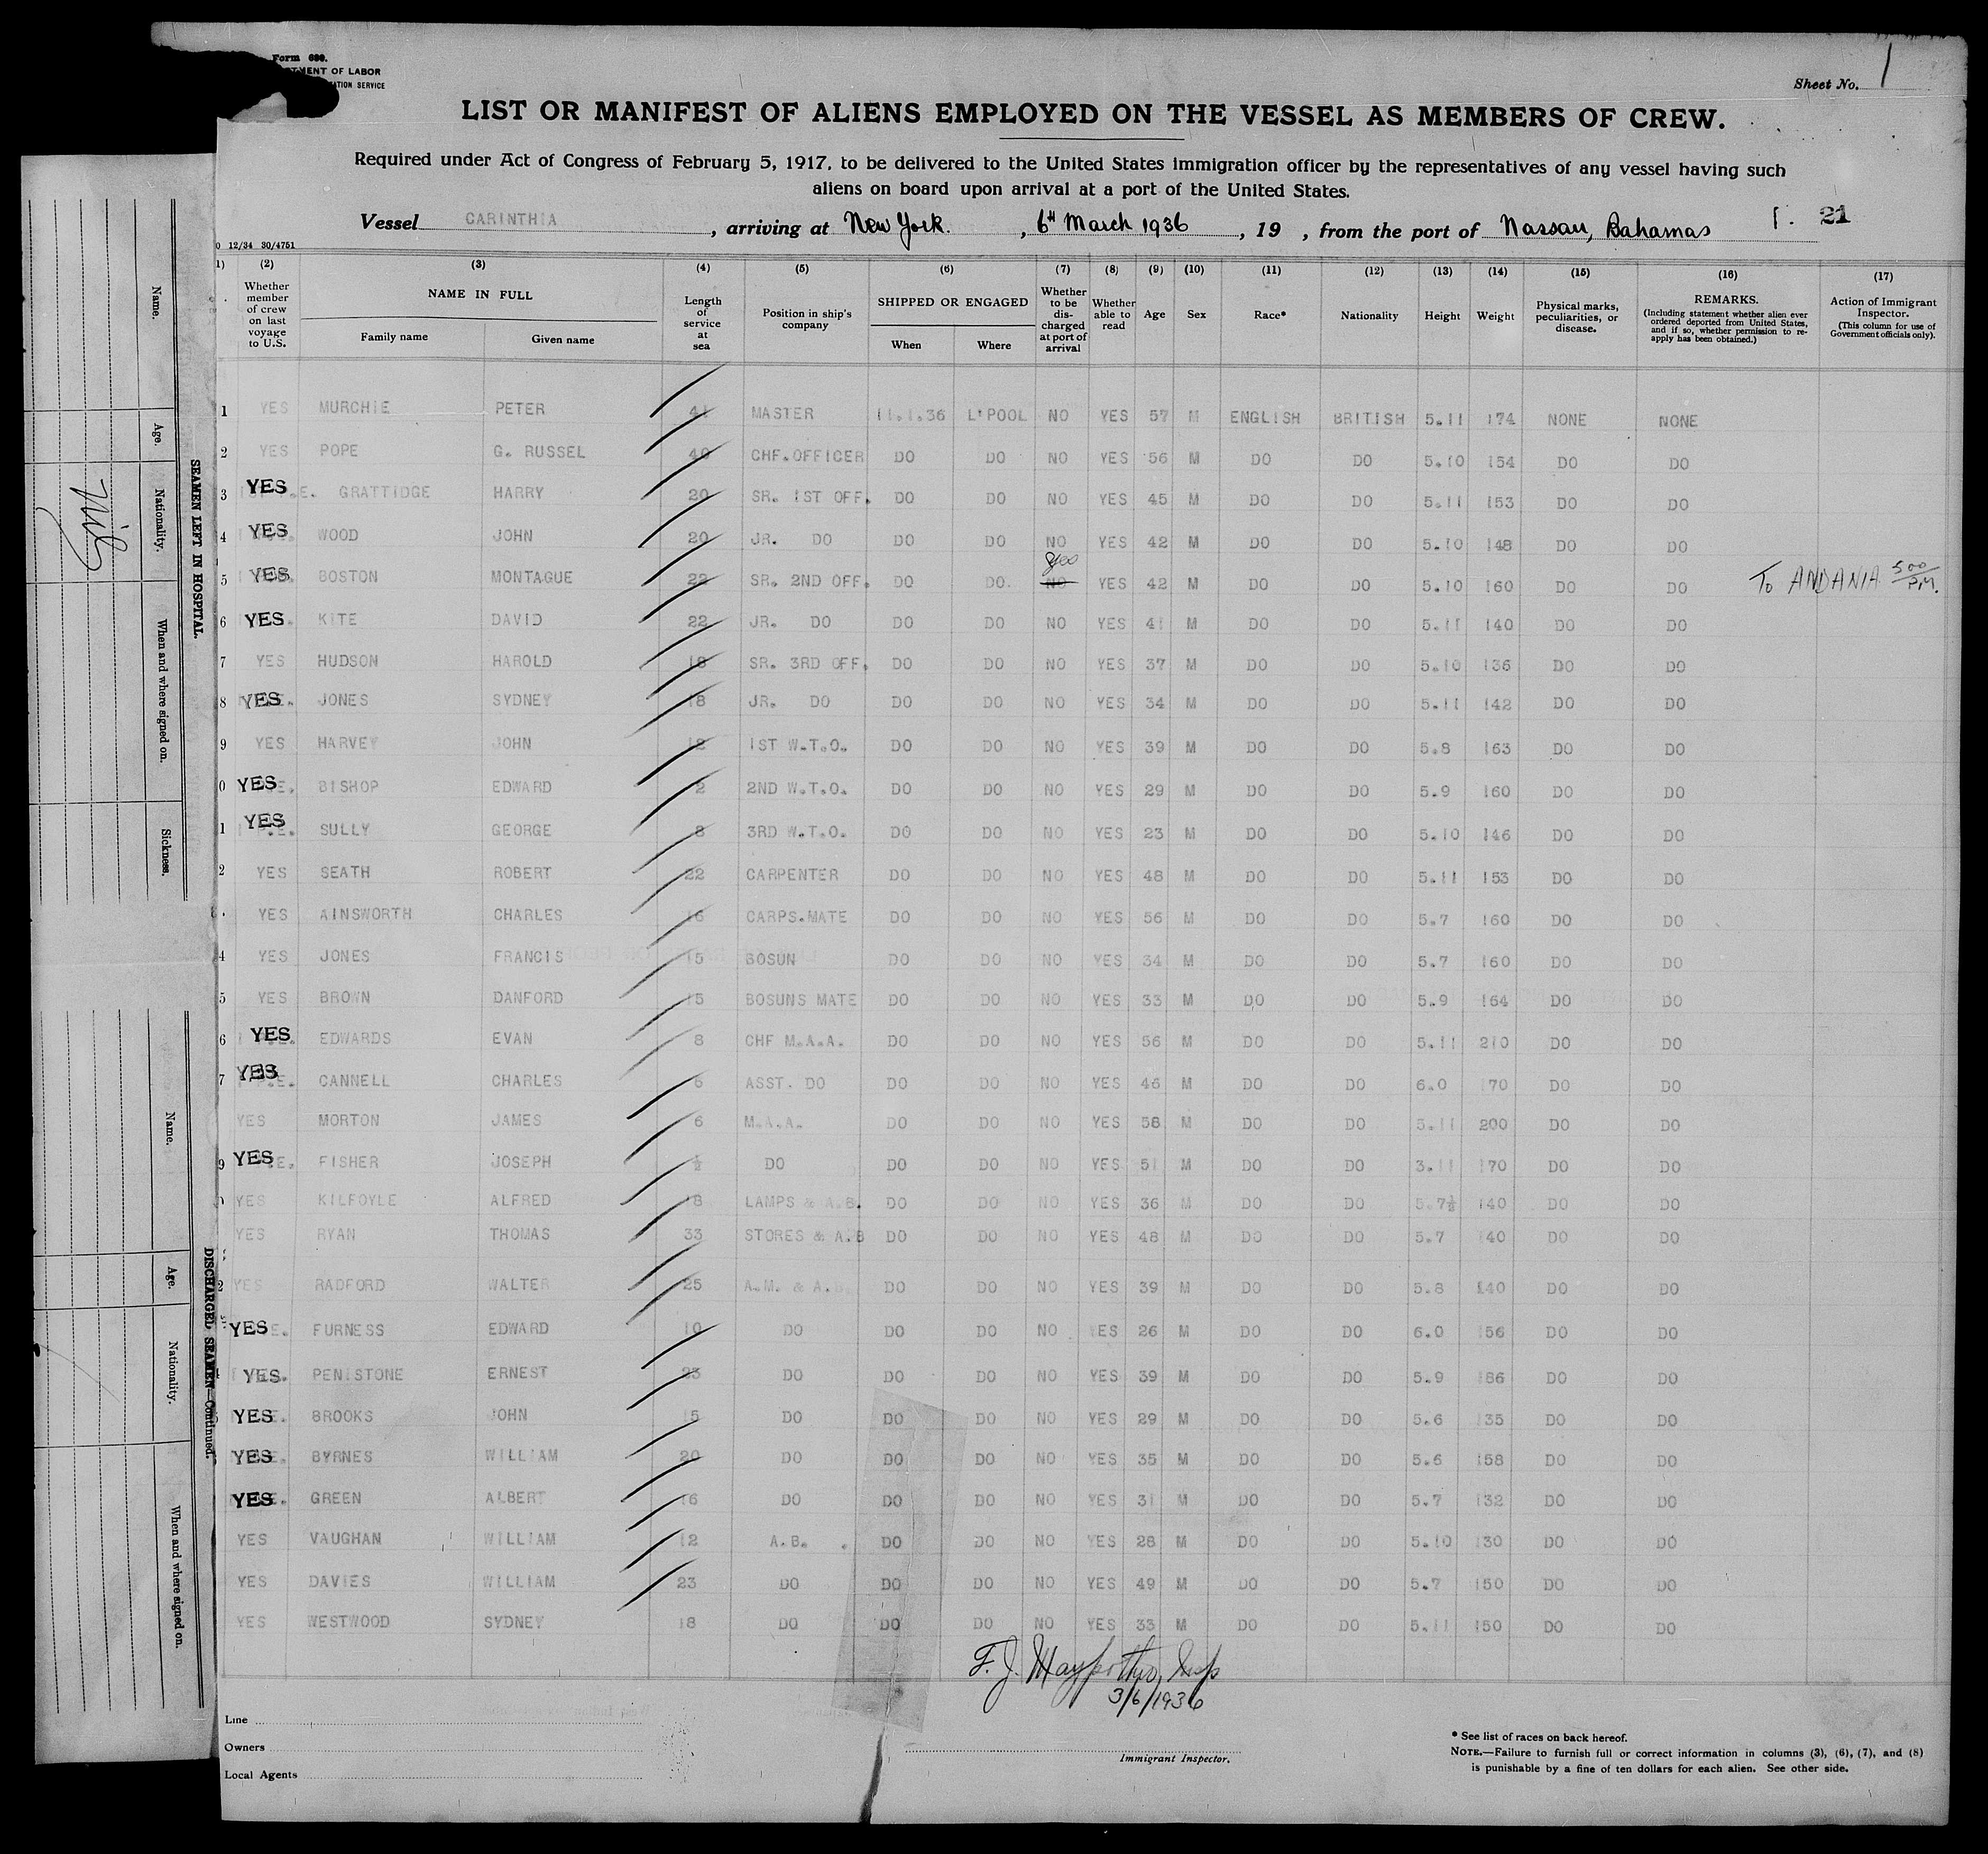 Form 680.
TMENT OF LABOR
ATION SERVICE
Sheet No. 1
LIST OR MANIFEST OF ALIENS EMPLOYED ON THE VESSEL AS MEMBERS OF CREW.
Required under Act of Congress of February 5, 1917, to be delivered to the United States immigration officer by the representatives of any vessel having such
aliens on board upon arrival at a port of the United States.
Vessel CARINTHIA, arriving at New York., 6th March 1936, 19 , from the port of Nassau, Bahamas 21
12/34 30/4751
(2) (3) (4) (5) (6) (7) (8) (9) (10) (11) (12) (13) (14) (15) (16) (17)
Whether member of crew on last voyage to U.S. NAME IN FULL Family name Given name Length of service at sea Position in ship's company SHIPPED OR ENGAGED When Where Whether to be discharged at port of arrival Whether able to read Age Sex Race* Nationality Height Weight Physical marks, peculiarities, or disease. REMARKS. (Including statement whether alien ever ordered deported from United States, and if so, whether permission to reapply has been obtained.) Action of Immigrant Inspector. (This column for use of Government officials only).
1 YES MURCHIE PETER 41 MASTER 11.1.36 L'POOL NO YES 57 M ENGLISH BRITISH 5.11 174 NONE NONE
2 YES POPE G. RUSSEL 40 CHF.OFFICER DO DO NO YES 56 M DO DO 5.10 154 DO DO
3 YES GRATTIDGE HARRY 20 SR. 1ST OFF. DO DO NO YES 45 M DO DO 5.11 153 DO DO
4 YES WOOD JOHN 20 JR. DO DO DO NO YES 42 M DO DO 5.10 148 DO DO
5 YES BOSTON MONTAGUE 22 SR. 2ND OFF. DO DO. NO yes YES 42 M DO DO 5.10 160 DO DO To ANDANIA 5 00 P.M.
6 YES KITE DAVID 22 JR. DO DO DO NO YES 41 M DO DO 5.11 140 DO DO
7 YES HUDSON HAROLD 18 SR. 3RD OFF. DO DO NO YES 37 M DO DO 5.10 136 DO DO
8 YES JONES SYDNEY 18 JR. DO DO DO NO YES 34 M DO DO 5.11 142 DO DO
9 YES HARVEY JOHN 12 1ST W.T.O. DO DO NO YES 39 M DO DO 5.8 163 DO DO
0 YES BISHOP EDWARD 2 2ND W.T.O. DO DO NO YES 29 M DO DO 5.9 160 DO DO
1 YES SULLY GEORGE 8 3RD W.T.O. DO DO NO YES 23 M DO DO 5.10 146 DO DO
2 YES SEATH ROBERT 22 CARPENTER DO DO NO YES 48 M DO DO 5.11 153 DO DO
YES AINSWORTH CHARLES 16 CARPS.MATE DO DO NO YES 56 M DO DO 5.7 160 DO DO
4 YES JONES FRANCIS 15 BOSUN DO DO NO YES 34 M DO DO 5.7 160 DO DO
5 YES BROWN DANFORD 15 BOSUNS MATE DO DO NO YES 33 M DO DO 5.9 164 DO DO
6 YES EDWARDS EVAN 8 CHF M.A.A. DO DO NO YES 56 M DO DO 5.11 210 DO DO
7 YES CANNELL CHARLES 6 ASST. DO DO DO NO YES 46 M DO DO 6.0 170 DO DO
YES MORTON JAMES 6 M.A.A. DO DO NO YES 58 M DO DO 5.11 200 DO DO
9 YES FISHER JOSEPH ½ DO DO DO NO YES 51 M DO DO 3.11 170 DO DO
YES KILFOYLE ALFRED 18 LAMPS & A.B. DO DO NO YES 36 M DO DO 5.7½ 140 DO DO
YES RYAN THOMAS 33 STORES & A.B DO DO NO YES 48 M DO DO 5.7 140 DO DO
2 YES RADFORD WALTER 25 A.M. & A.B. DO DO NO YES 39 M DO DO 5.8 140 DO DO
YES FURNESS EDWARD 10 DO DO DO NO YES 26 M DO DO 6.0 156 DO DO
YES PENISTONE ERNEST 23 DO DO DO NO YES 39 M DO DO 5.9 186 DO DO
YES BROOKS JOHN 15 DO DO DO NO YES 29 M DO DO 5.6 135 DO DO
YES BYRNES WILLIAM 20 DO DO DO NO YES 35 M DO DO 5.6 158 DO DO
YES GREEN ALBERT 16 DO DO DO NO YES 31 M DO DO 5.7 132 DO DO
YES VAUGHAN WILLIAM 12 A.B. DO DO NO YES 28 M DO DO 5.10 130 DO DO
YES DAVIES WILLIAM 23 DO DO DO NO YES 49 M DO DO 5.7 150 DO DO
YES WESTWOOD SYDNEY 18 DO DO DO NO YES 33 M DO DO 5.11 150 DO DO
F. J. Insp
3/6/1936
Line
Owners
Local Agents
Immigrant Inspector.
* See list of races on back hereof.
NOTE.—Failure to furnish full or correct information in columns (3), (6), (7), and (8)
is punishable by a fine of ten dollars for each alien. See other side.
SEAMEN LEFT IN HOSPITAL.
Name. Age. Nationality. When and where signed on. Sickness.
Nil
DISCHARGED SEAMEN—Continued.
Name. Age. Nationality. When and where signed on.